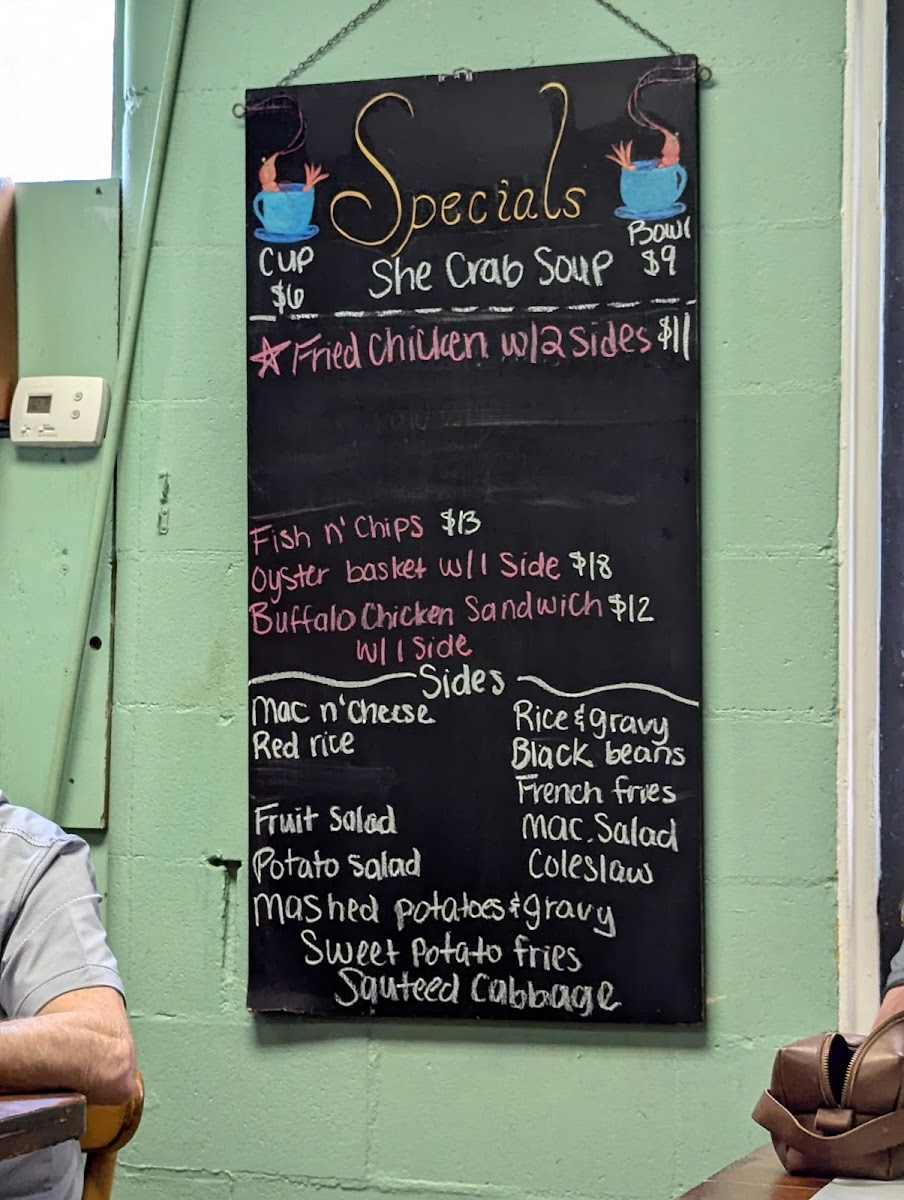 Specials
Cup
$6
She Crab Soup
Bowl
$9
Fried Chicken w/2 Sides $11
Fish n' Chips $13
Oyster basket w/1 Side $18
Buffalo Chicken Sandwich $12
w/1 Side
Sides
Mac n' Cheese
Rice & gravy
Red rice
Black beans
French fries
Fruit Salad
Mac. Salad
Potato salad
Coleslaw
Mashed potatoes & gravy
Sweet Potato fries
Sauteed Cabbage